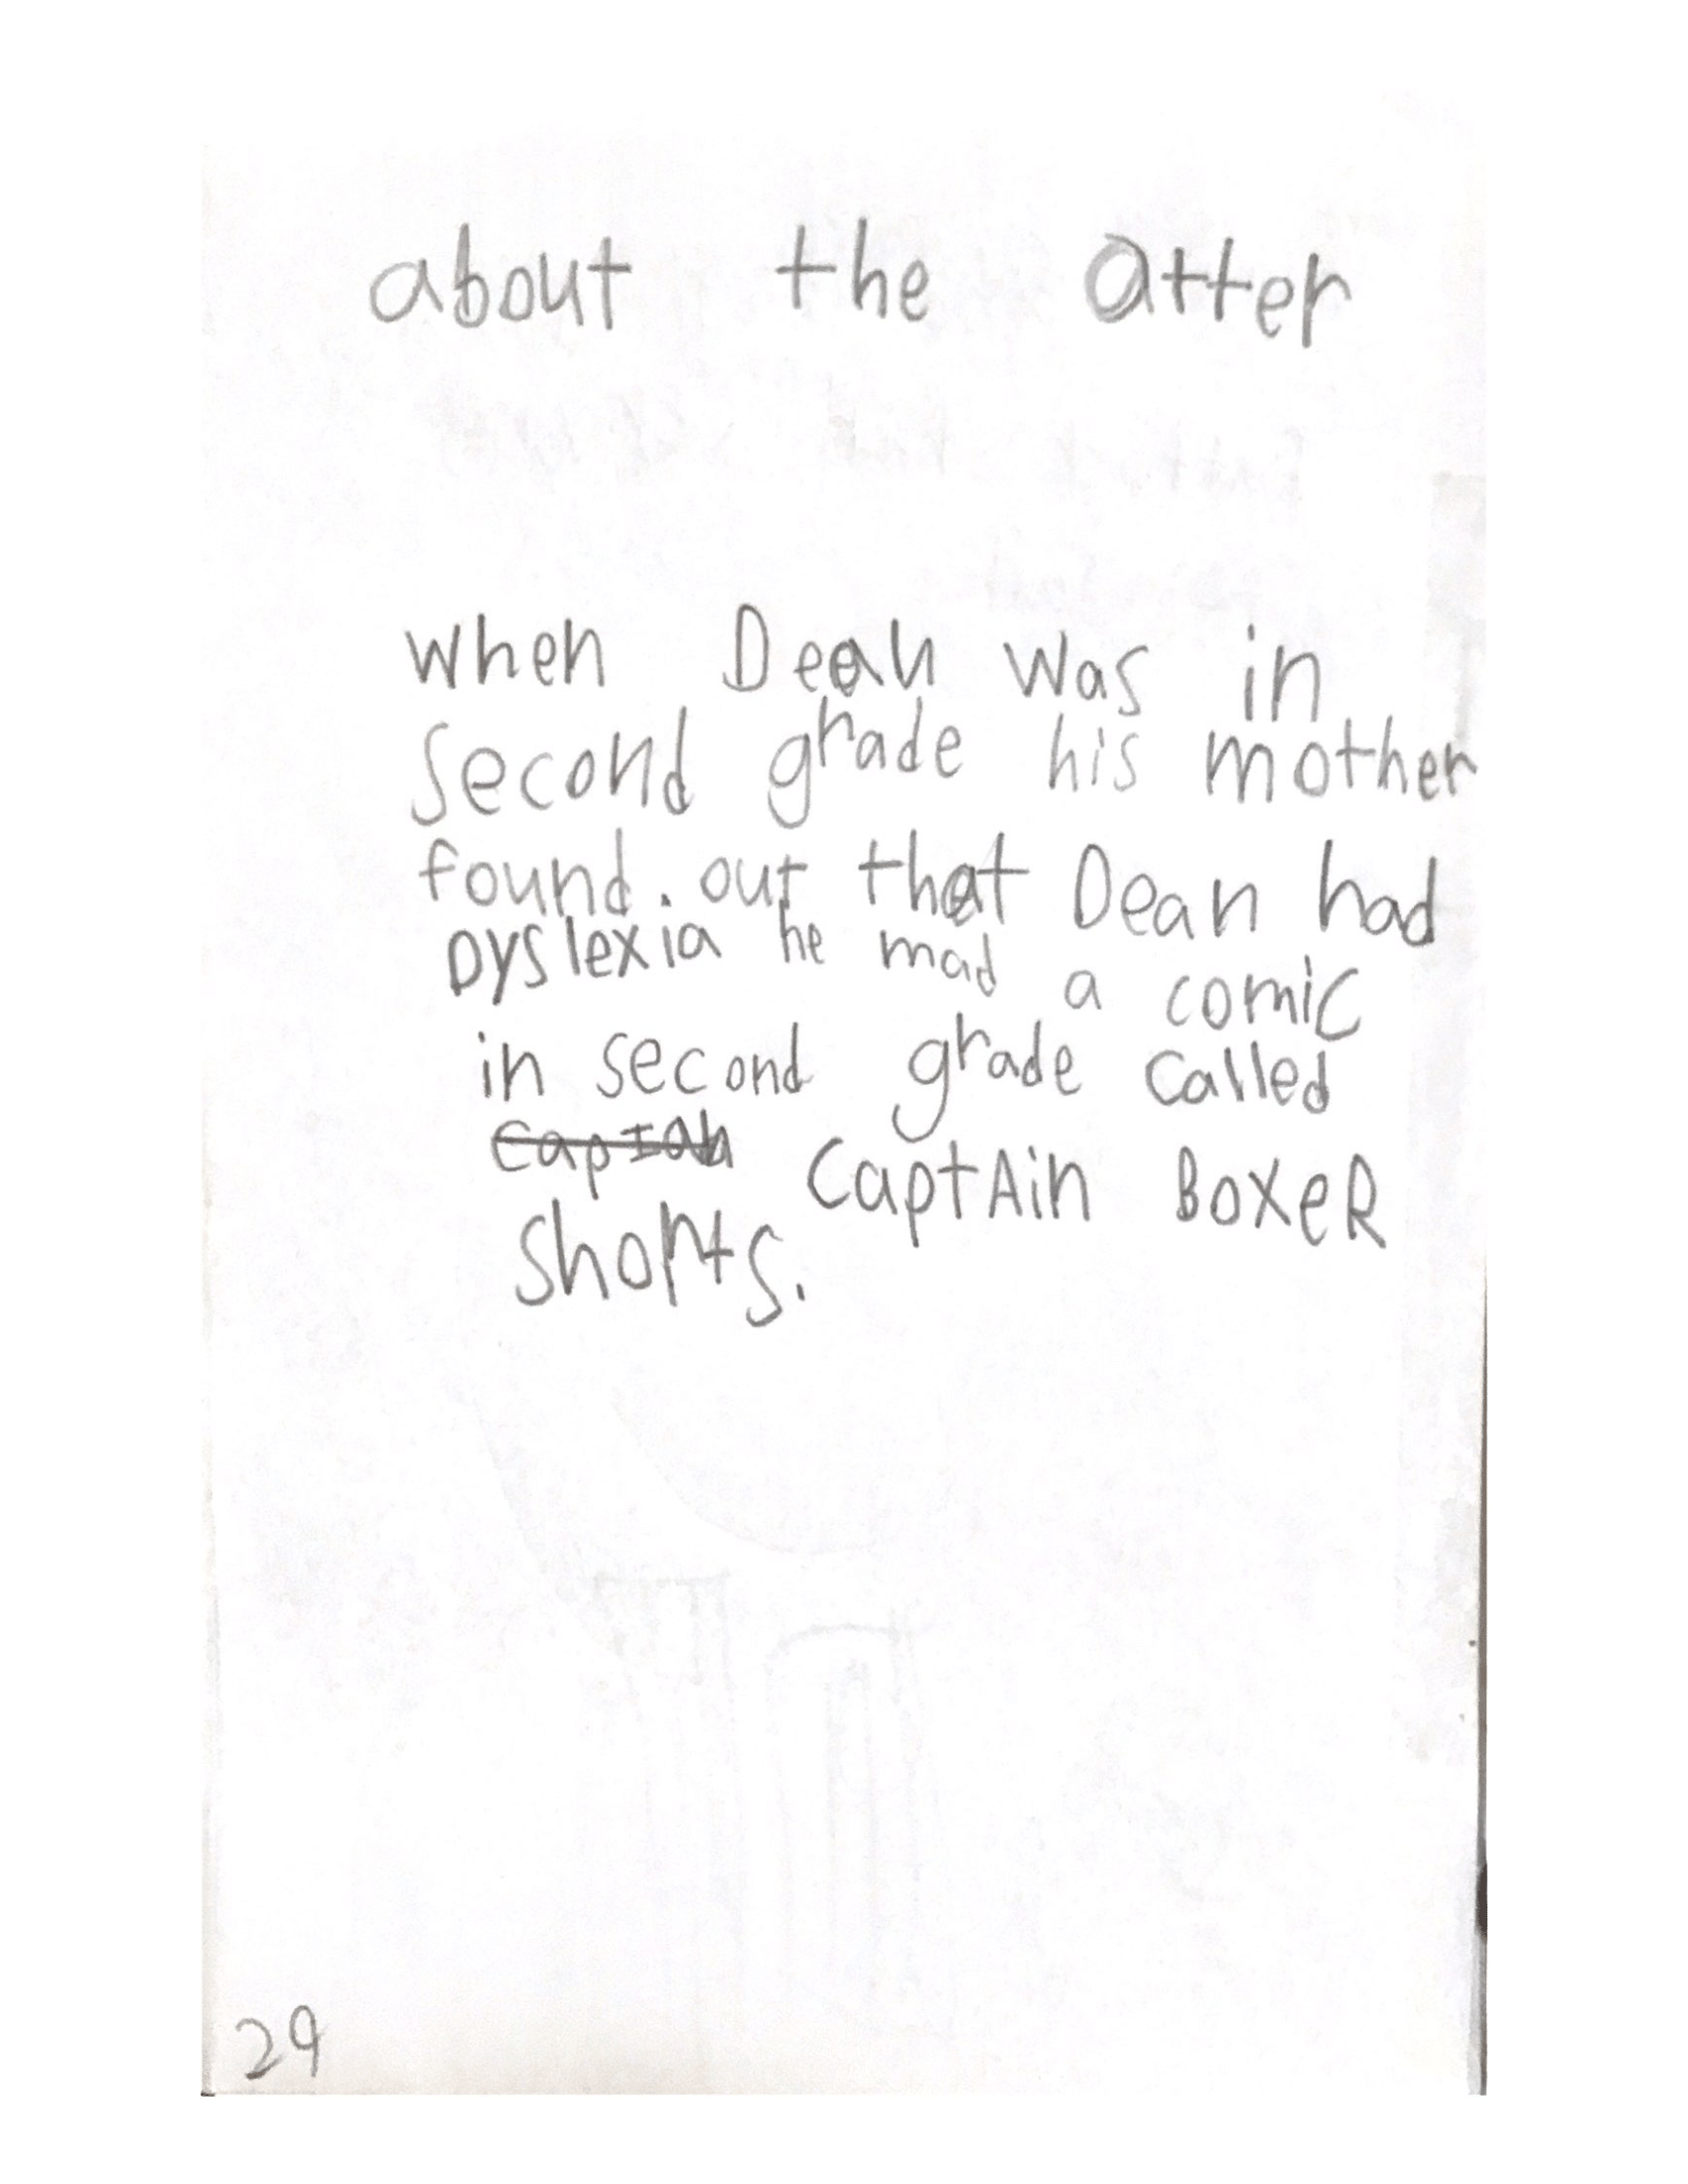 about the atter
when Dean was in
second grade his mother
found. out that Dean had
Dyslexia he mad a comic
in second grade called
CaptAin BoxeR
shorts.
29